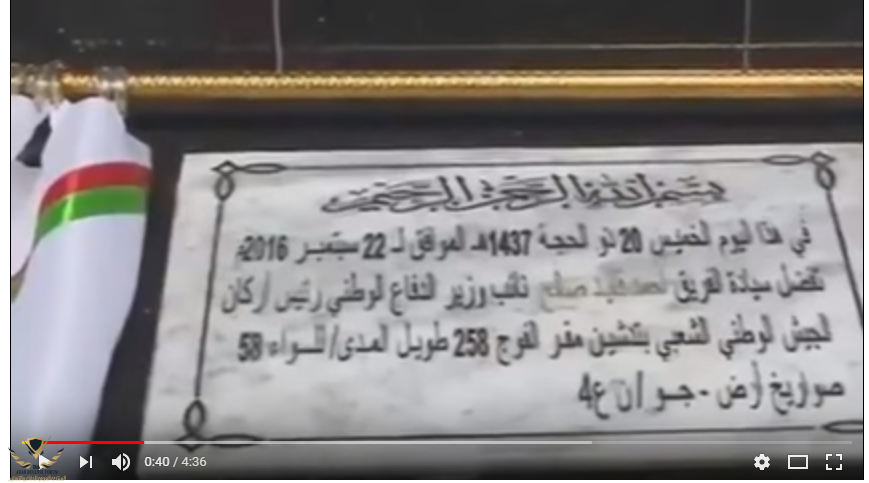 بسم الله الرحمن الرحيم
في هذا اليوم الخميس 20 ذو الحجة 1437هـ الموافق لـ 22 سبتمبر 2016م
تفضل سيادة الفريق أحمد قايد صالح نائب وزير الدفاع الوطني رئيس أركان
الجيش الوطني الشعبي بتدشين مقر الفوج 258 طويل المدى/ للـــواء 58
صواريخ أرض - جـــو / ن ع4
0:40 / 4:36